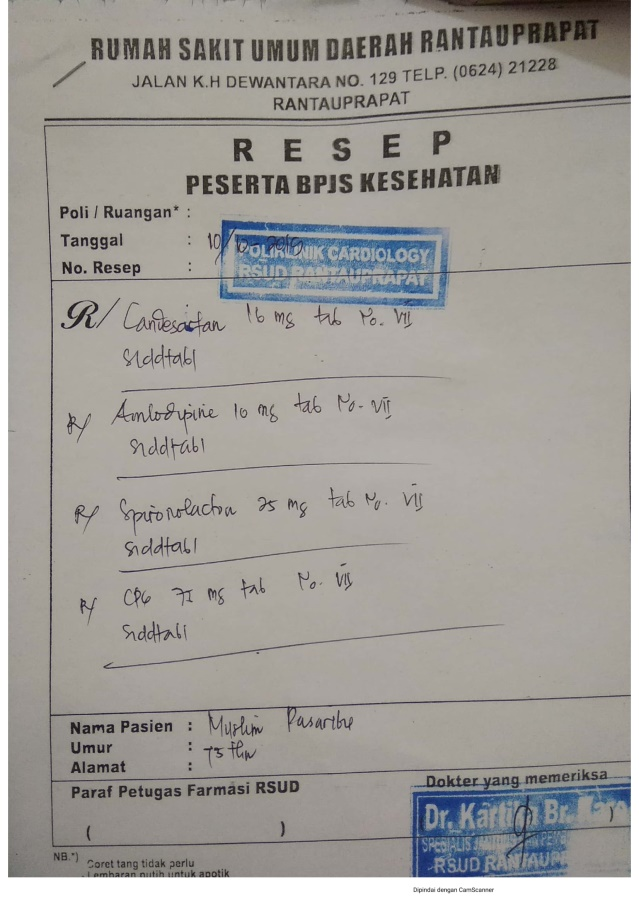 RUMAH SAKIT UMUM DAERAH RANTAUPRAPAT
JALAN K.H DEWANTARA NO. 129 TELP. (0624) 21228
RANTAUPRAPAT
RESEP
PESERTA BPJS KESEHATAN
Poli / Ruangan* :
Tanggal : 10/
No. Resep :
POLIKLINIK CARDIOLOGY
RSUD RANTAUPRAPAT
R/ Candesartan 16 mg tab No. VII
S1ddtab1
R/ Amlodipine 10 mg tab No. VII
S1ddtab1
R/ Spironolacton 25 mg tab No. VII
S1ddtab1
R/ CPG 75 mg tab No. VII
S1ddtab1
Nama Pasien : Muslim
Umur : 75 thn
Alamat :
Paraf Petugas Farmasi RSUD
( )
Dokter yang memeriksa
Dr. Br.
SPESIALIS
RSUD
NB.*)
Coret tang tidak perlu
- Lembaran putih untuk apotik
Dipindai dengan CamScanner